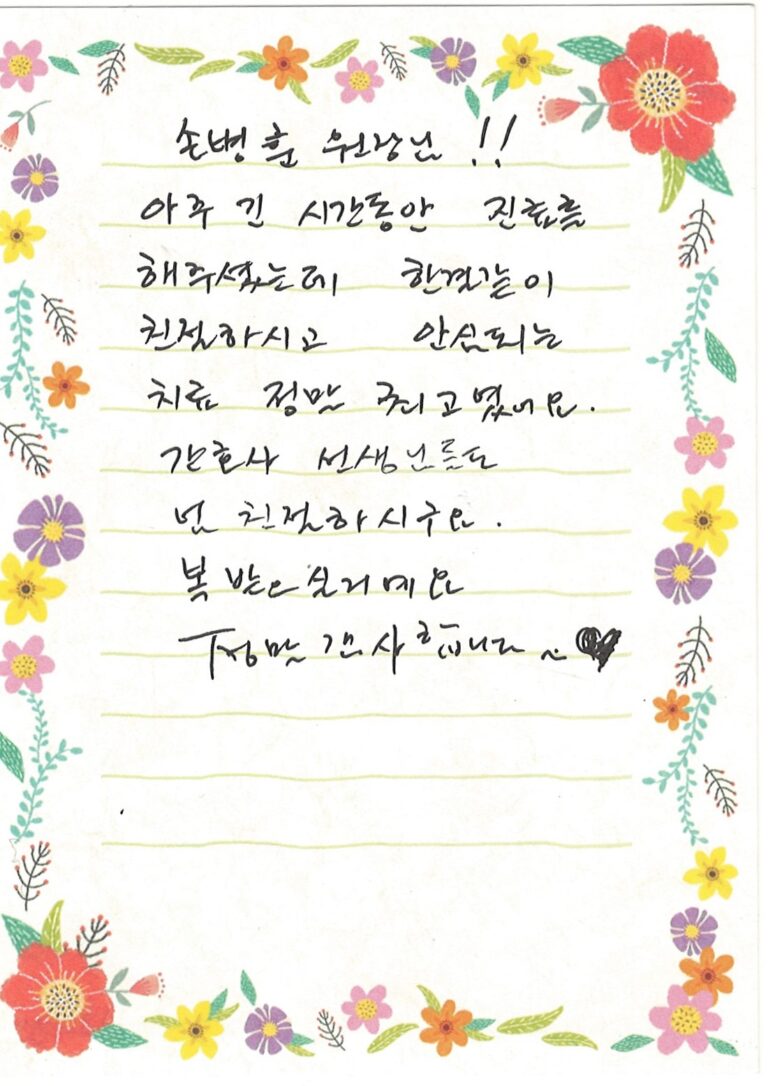 손병훈 원장님 !!
아주 긴 시간동안 진료를
해주셨는데 한결같이
친절하시고 안심되는
치료 정말 최고였어요.
간호사 선생님들도
넘 친절하시구요.
복 받으실거예요
정말 감사합니다 ~♥